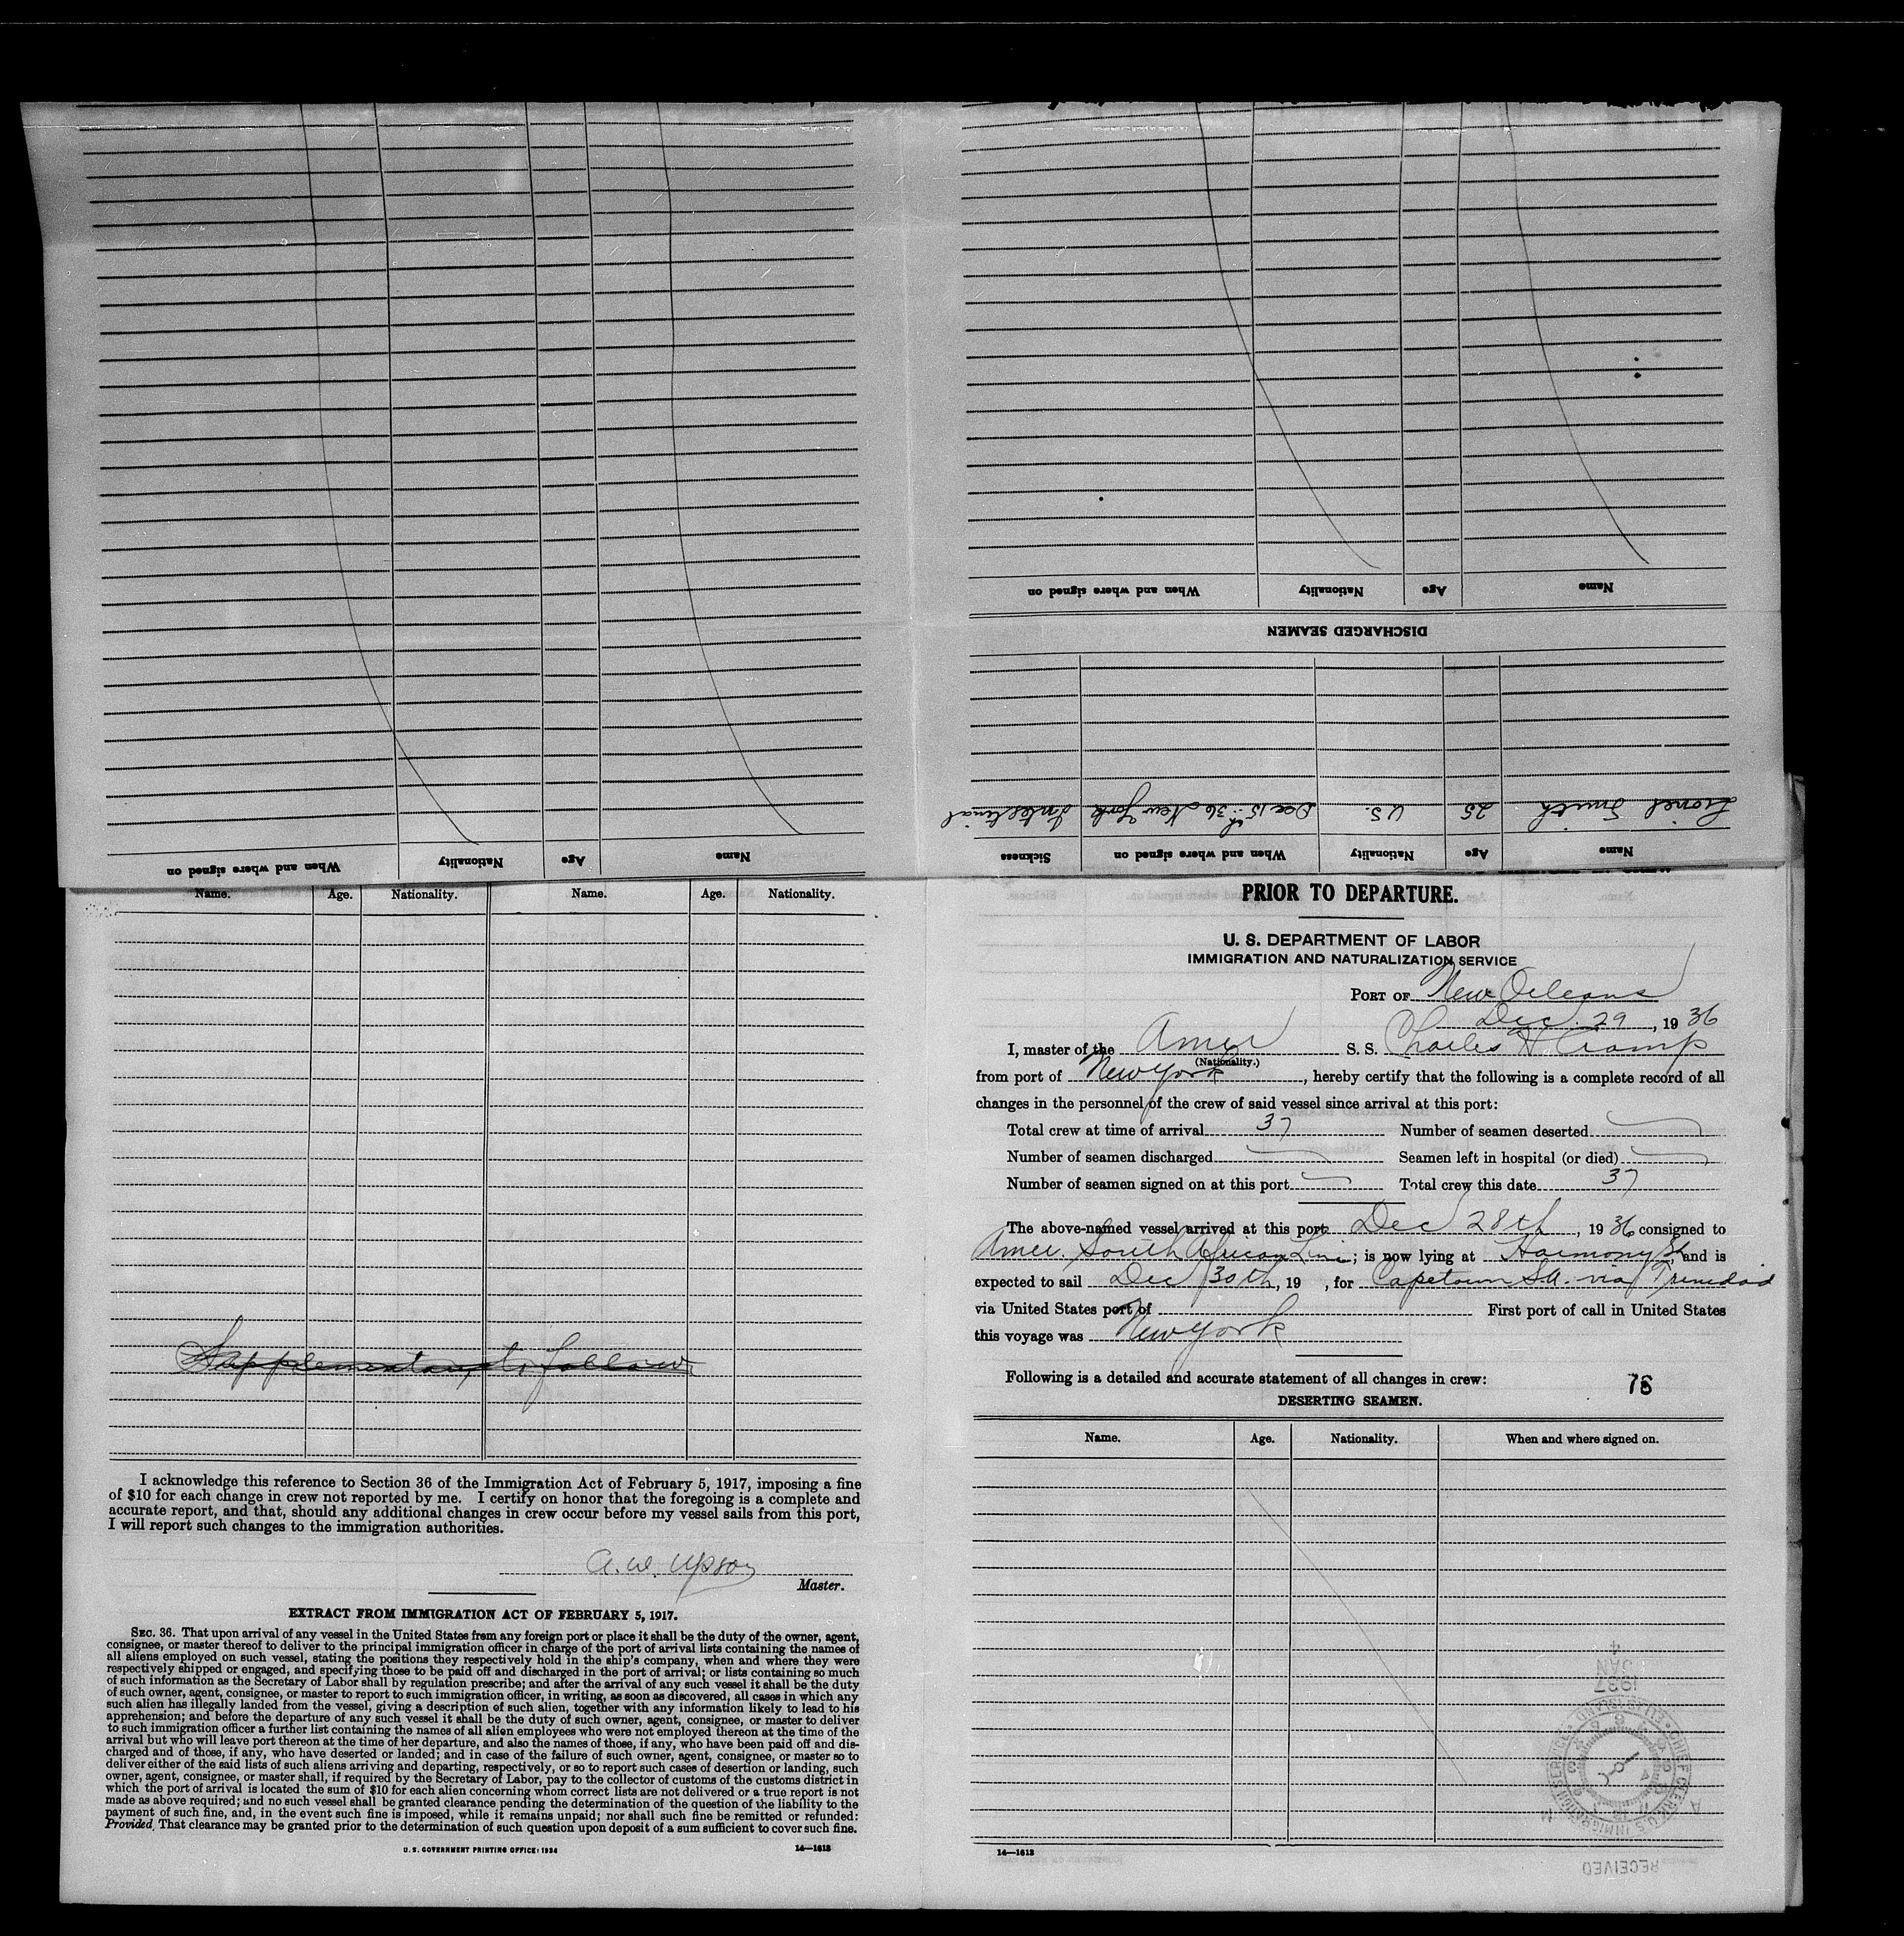 When and where signed on
Nationality
Age
Name
Name
Age
Nationality
When and where signed on
DISCHARGED SEAMEN
Lionel Smith 25 U.S. Dec 15th 36 New York Intestinal
Name
Age
Nationality
When and where signed on
Sickness
Name. Age. Nationality. Name. Age. Nationality.
Supplementary to follow
I acknowledge this reference to Section 36 of the Immigration Act of February 5, 1917, imposing a fine
of $10 for each change in crew not reported by me. I certify on honor that the foregoing is a complete and
accurate report, and that, should any additional changes in crew occur before my vessel sails from this port,
I will report such changes to the immigration authorities.
A. W. Upson
Master.
EXTRACT FROM IMMIGRATION ACT OF FEBRUARY 5, 1917.
SEC. 36. That upon arrival of any vessel in the United States from any foreign port or place it shall be the duty of the owner, agent,
consignee, or master thereof to deliver to the principal immigration officer in charge of the port of arrival lists containing the names of
all aliens employed on such vessel, stating the positions they respectively hold in the ship's company, when and where they were
respectively shipped or engaged, and specifying those to be paid off and discharged in the port of arrival; or lists containing so much
of such information as the Secretary of Labor shall by regulation prescribe; and after the arrival of any such vessel it shall be the duty
of such owner, agent, consignee, or master to report to such immigration officer, in writing, as soon as discovered, all cases in which any
such alien has illegally landed from the vessel, giving a description of such alien, together with any information likely to lead to his
apprehension; and before the departure of any such vessel it shall be the duty of such owner, agent, consignee, or master to deliver
to such immigration officer a further list containing the names of all alien employees who were not employed thereon at the time of the
arrival but who will leave port thereon at the time of her departure, and also the names of those, if any, who have been paid off and dis-
charged and of those, if any, who have deserted or landed; and in case of the failure of such owner, agent, consignee, or master so to
deliver either of the said lists of such aliens arriving and departing, respectively, or so to report such cases of desertion or landing, such
owner, agent, consignee, or master shall, if required by the Secretary of Labor, pay to the collector of customs of the customs district in
which the port of arrival is located the sum of $10 for each alien concerning whom correct lists are not delivered or a true report is not
made as above required; and no such vessel shall be granted clearance pending the determination of the question of the liability to the
payment of such fine, and, in the event such fine is imposed, while it remains unpaid; nor shall such fine be remitted or refunded:
Provided, That clearance may be granted prior to the determination of such question upon deposit of a sum sufficient to cover such fine.
U. S. GOVERNMENT PRINTING OFFICE: 1934 14—1613
PRIOR TO DEPARTURE.
U. S. DEPARTMENT OF LABOR
IMMIGRATION AND NATURALIZATION SERVICE
PORT OF New Orleans
Dec. 29, 1936
I, master of the Amer S. S. Charles H. Cramp
(Nationality.)
from port of New York, hereby certify that the following is a complete record of all
changes in the personnel of the crew of said vessel since arrival at this port:
Total crew at time of arrival 37 Number of seamen deserted
Number of seamen discharged Seamen left in hospital (or died)
Number of seamen signed on at this port Total crew this date 37
The above-named vessel arrived at this port Dec 28th, 1936 consigned to
Amer. South African Line; is now lying at Harmony St. and is
expected to sail Dec 30th, 19 , for Capetown S.A. via Trinidad
via United States port of First port of call in United States
this voyage was New York
Following is a detailed and accurate statement of all changes in crew:
78
DESERTING SEAMEN.
Name. Age. Nationality. When and where signed on.
14—1613
RECEIVED
1937
JAN
4